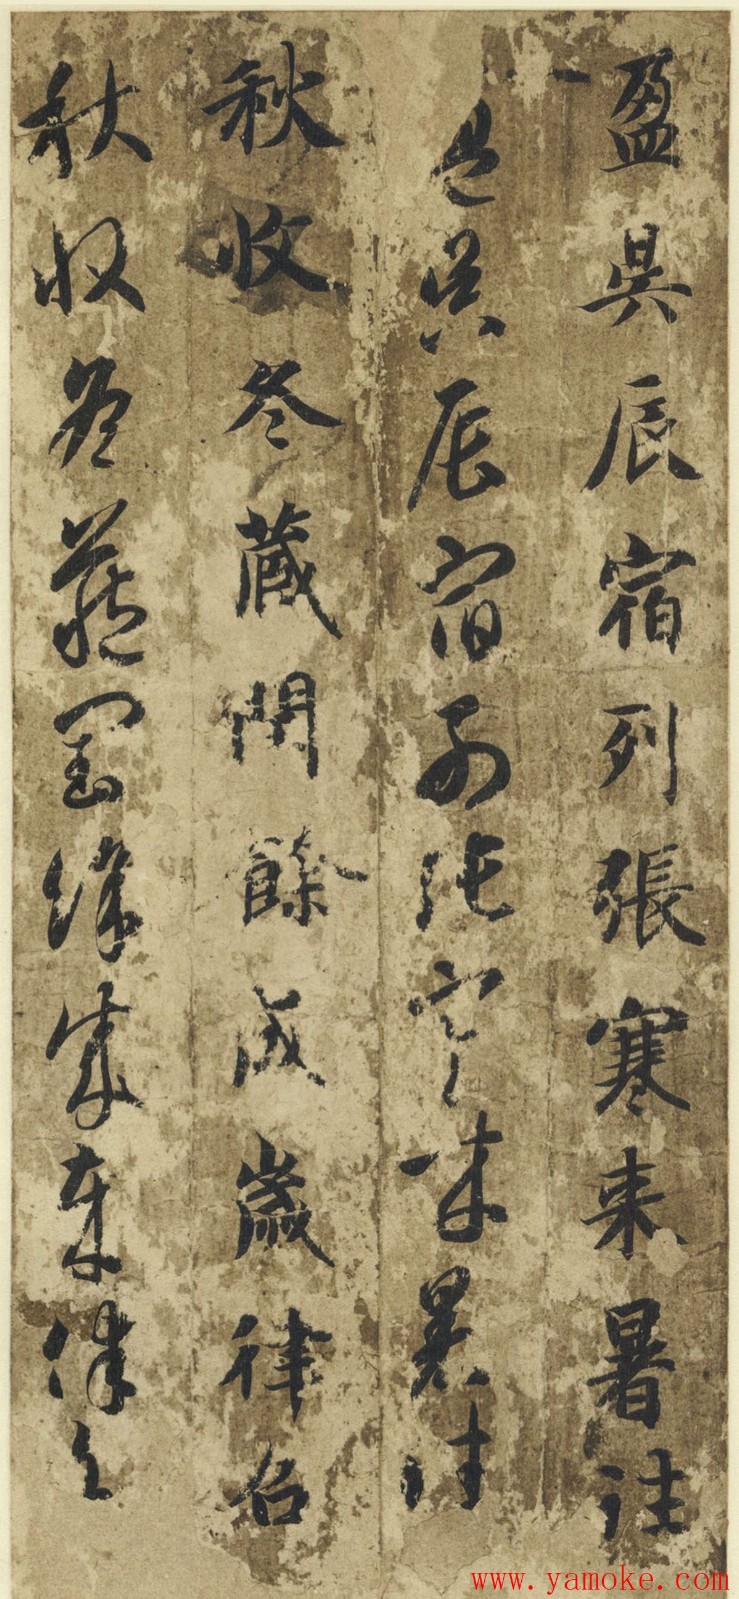 盈昃辰宿列張寒来暑往
盈昃辰宿列張寒来暑往
秋收冬蔵閏餘成歲律召
秋収冬蔵閏餘成歲律召
www.yamoke.com